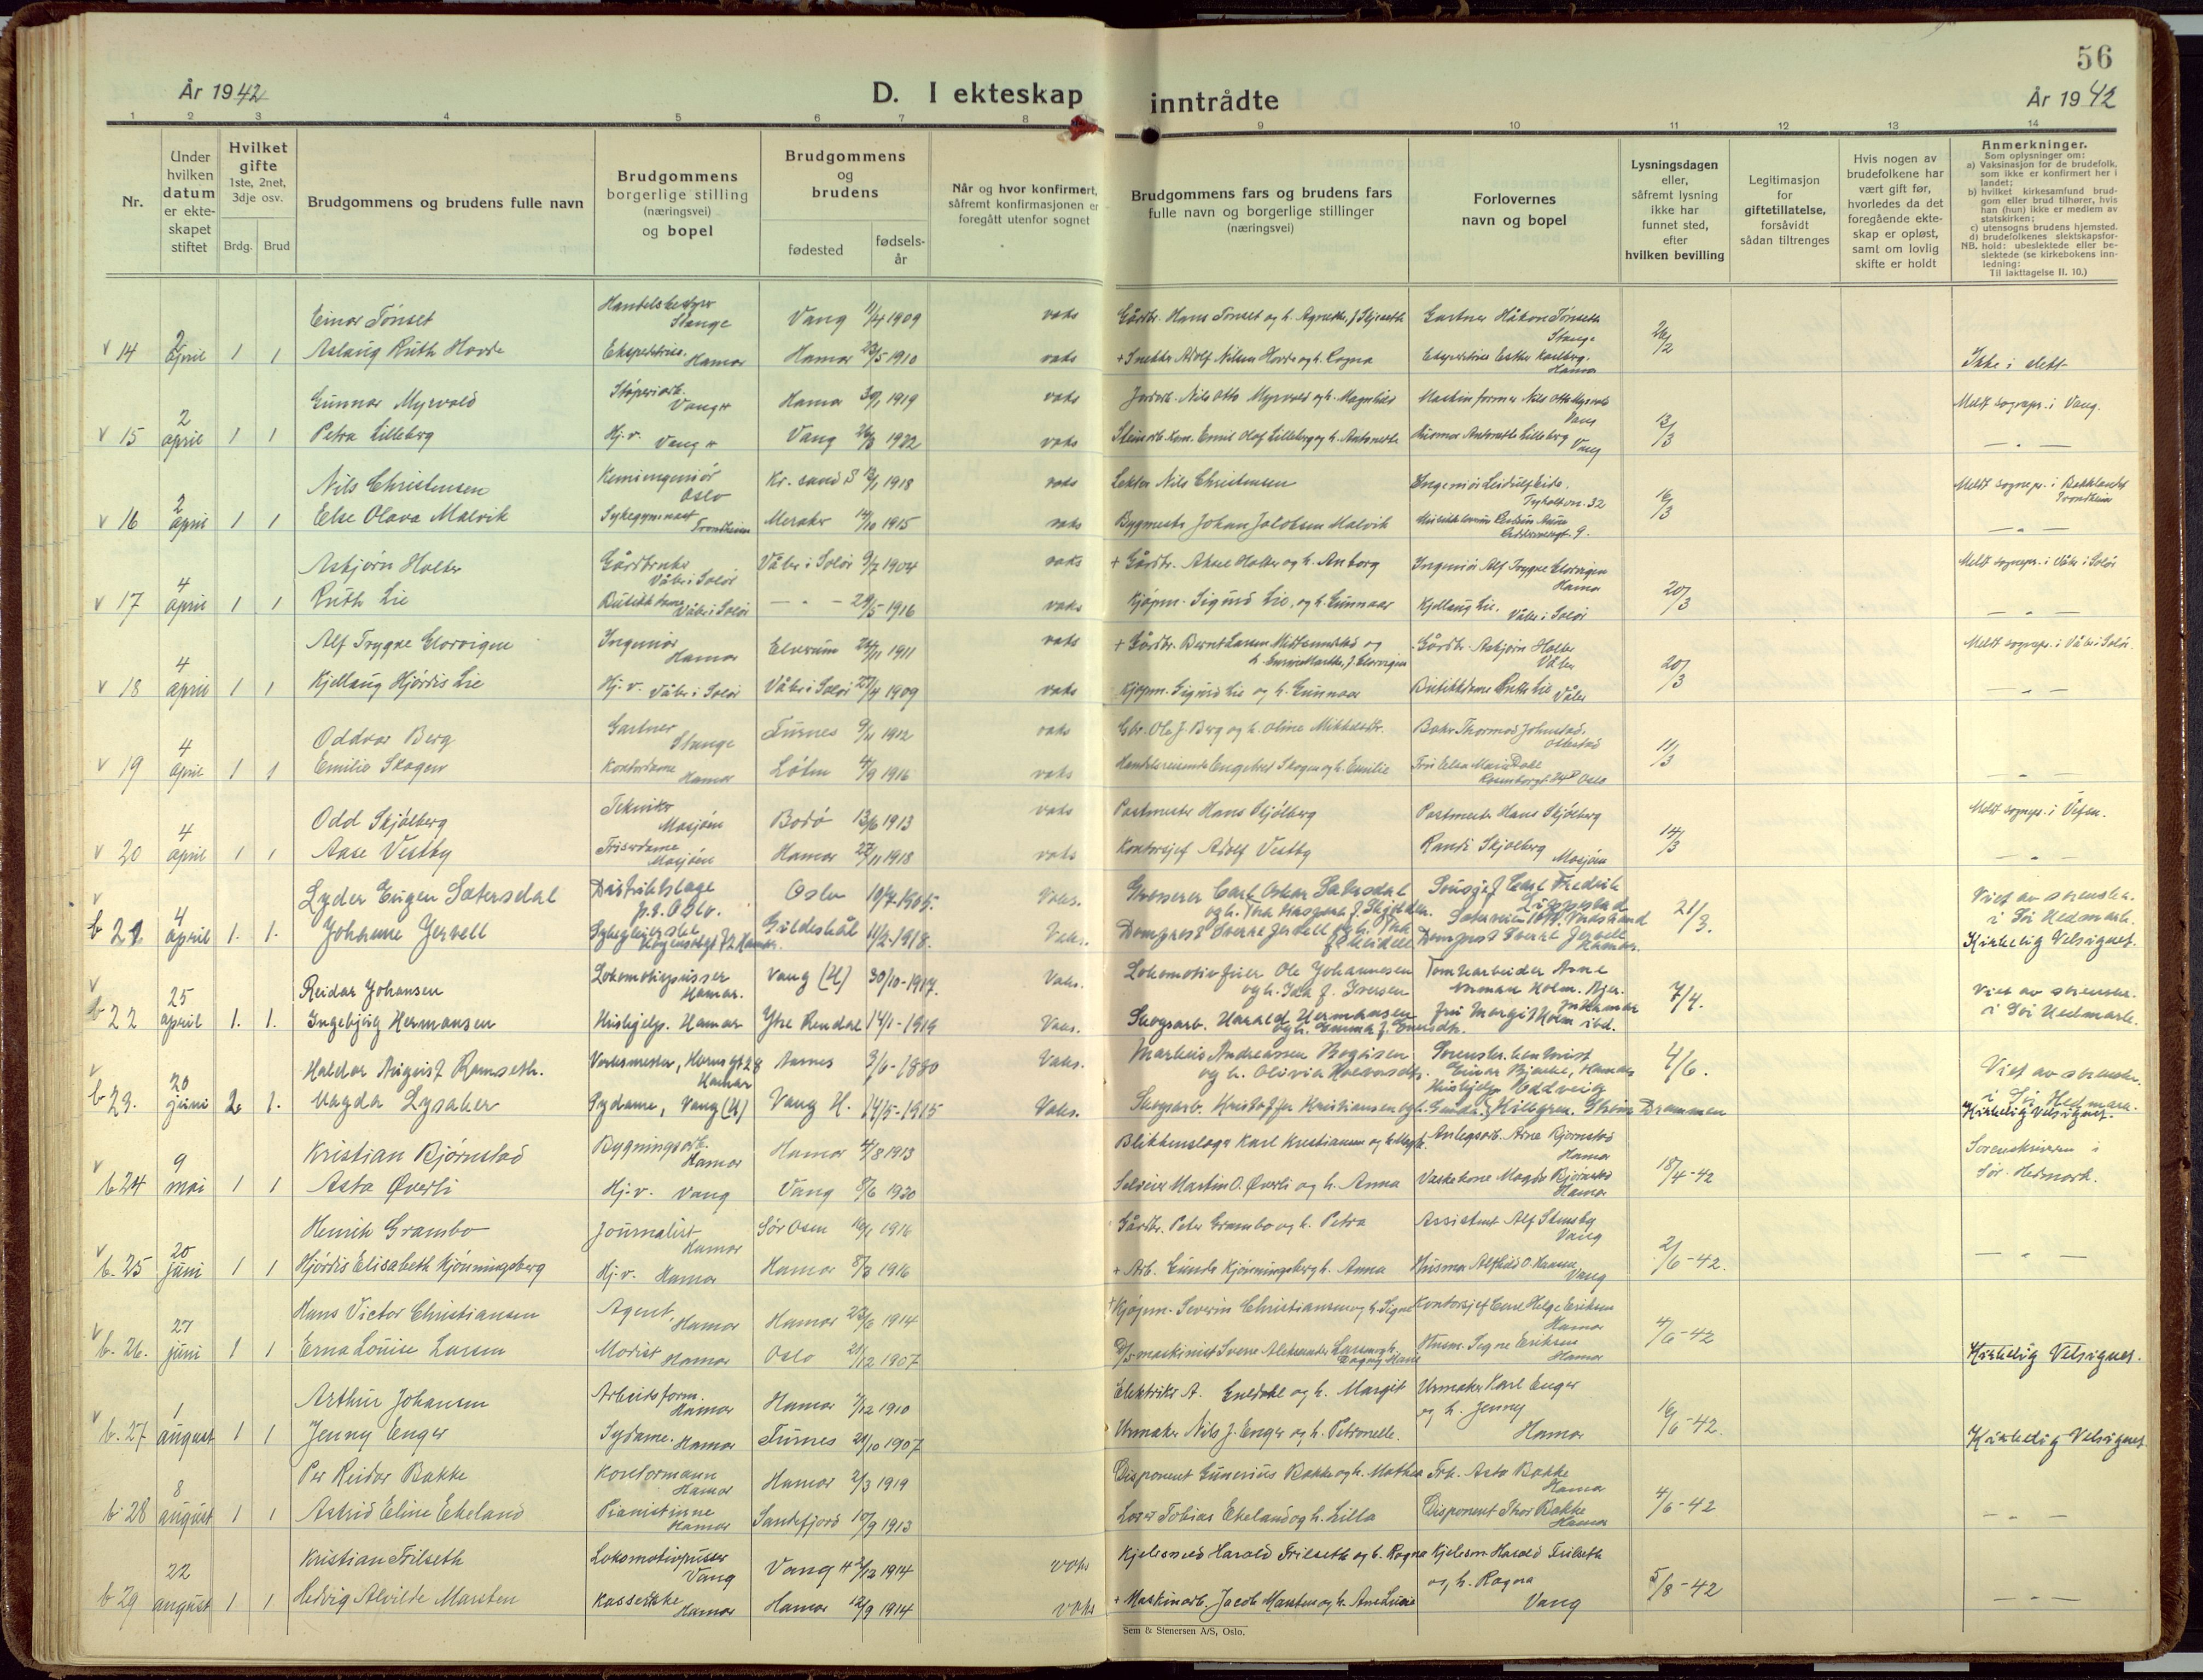 56
År 1942
D. I ekteskap inntrådte
År 1942
1 2 3 4 5 6 7 8 9 10 11 12 13 14
Nr.
Under hvilken datum er ekteskapet stiftet
Hvilket gifte 1ste, 2net, 3dje osv.
Brdg. Brud
Brudgommens og brudens fulle navn
Brudgommens borgerlige stilling (næringsvei) og bopel
Brudgommens og brudens
fødested
fødsels-år
Når og hvor konfirmert, såfremt konfirmasjonen er foregått utenfor sognet
Brudgommens fars og brudens fars fulle navn og borgerlige stillinger (næringsvei)
Forlovernes navn og bopel
Lysningsdagen eller, såfremt lysning ikke har funnet sted, efter hvilken bevilling
Legitimasjon for giftetillatelse, forsåvidt sådan tiltrenges
Hvis nogen av brudefolkene har vært gift før, hvorledes da det foregående ekteskap er opløst, samt om lovlig skifte er holdt
Anmerkninger.
Som oplysninger om:
a) Vaksinasjon for de brudefolk, som ikke er konfirmert her i landet;
b) hvilket kirkesamfund brudgom eller brud tilhører, hvis han (hun) ikke er medlem av statskirken;
c) utensogns brudens hjemsted.
d) brudefolkenes slektskapsforhold: ubeslektede eller beslektede (se kirkebokens innledning:
NB.
Til iakttagelse II. 10.)
Einar Tønset Handelsbestyr Stange Vang 11/4 1909 vaks Gårdbr. Hans Tønset og h. Agnethe, f. Skjeseth Gartner Håkon Tønseth Stange
v 14 2 april 1 1 Aslaug Ruth Hovde Ekspeditrise Hamar Hamar 23/5 1910 vaks + Snekker Adolf Nilsen Hovde og h. Ragna Ekspeditrise Esther Karlberg. Hamar 26/2 Ikke i slekt
Gunnar Myrvold Støperiarb. Vang H Hamar 30/1 1919 vaks Jordarb. Nils Otto Myrvold og h. Magnhild Maskinformer Nils Otto Myrvold Vang Meldt sognepr. i Vang.
v 15 2 april 1 1 Petra Lilleberg Hj.v. Vang H Vang 26/3 1922 vaks Steinarb. Kom. Emil Olaf Lilleberg og h. Antonette Husmor Antonette Lilleberg Vang 12/3 — " —
Nils Christensen Kemiingeniør Oslo Kr.sand S 13/1 1918 vaks Lektor Nils Christensen Ingeniør Leidulf Eide. Tyholtvn. 32 Meldt sognepr. i Bakklandet Trondheim
v 16 2 april 1 1 Else Olava Malvik Sykegymnast Trondheim Meraker 14/10 1915 vaks Bygmester Johan Jakobsen Malvik 16/3 — " —
Asbjørn Holter Gårdbruker Våler i Solør Våler i Solør 9/7 1904 vaks + Gårdbr. Aksel Holter og h. Anborg Ingeniør Alf Trygve Glorvigen Hamar Meldt sognepr. i Våler i Solør
v 17 4 april 1 1 Ruth Lie Butikkdame Våler i Solør — " — 29/5 1916 vaks Kjøpm. Sigurd Lie, og h. Gunnaar Kjellaug Lie. Våler i Solør 20/3 — " —
Alf Trygve Glorvigen Ingeniør Hamar Elverum 26/11 1911 vaks + Gårdbr. Bernt Larsen Midtsundstad og h. Marthe, f. Glorvigen Gårdbr. Asbjørn Holter Våler Meldt sognepr. i Våler i Solør.
v 18 4 april 1 1 Kjellaug Hjørdis Lie Hj.v. Våler i Solør Våler i Solør 27/4 1909 vaks Kjøpm. Sigurd Lie og h. Gunnaar Butikkdame Ruth Lie Våler 20/3 — " —
Oddvar Berg Gartner Stange Furnes 9/2 1912 vaks Gbr. Ole J. Berg og h. Oline Mikkelsdtr. Baker Thormod Johnstad. Ottestad
v 19 4 april 1 1 Emilie Skogen Kontordame Hamar Løten 4/9 1916 vaks Handelsreisende Engebret Skogen og h. Emilie Fru Elsa Marie Dahl Rosenborggt. 24 Oslo 11/3 — " —
Odd Skjølberg Tekniker Mosjøen Bodø 13/6 1913 vaks Postmester Hans Skjølberg Postmester Hans Skjølberg Meldt sognepr. i Vefsn.
v 20 4 april 1 1 Aase Vestby Friserdame Mosjøen Hamar 27/11 1918 vaks Kontorsjef Adolf Vestby Randi Skjølberg Mosjøen 14/3 — " —
v Lyder Eugen Sætersdal Distriktslæge p.t. Oslo. Oslo 10/7-1905. Vaks. Grosserer Carl Oskar Sætersdal og h. Kaspara f. Skjelder. Sousjef Carl Fredrik Lippestad Viet av sorenskr. i Sør Hedmark.
b 21. 4 april 1. 1. Johanne Jervell Sykepleierske Hamar. Gildeskål 11/2-1918. Vaks. Domprost Sverre Jervell og h. Domprost Sverre Jervell Hamar. 21/3. Kirkelig Velsignet.
v Reidar Johansen Lokomotivpusser Hamar. Vang (H) 30/10-1917. Vaks. Lokomotivfører Ole Johannesen og h. Ida f. Iversen Tomtearbeider Arne Norman Holm. Viet av sorenskr. i Sør Hedmark.
b 22 25 april 1. 1. Ingebjørg Hermansen Hushjelp. Hamar Ytre Rendal 14/1-1919 Vaks. Skogsarb. Harald Hermansen og h. Emma f. Fru Margit Holm ibd. 7/4.
v Haldor August Ramseth. Verksmester, Hamar Aasnes 3/6-1880 Vaks. Markeis Andreassen Bogåsen og h. Olivia Halvorsdtr. Einar Bjerke, Hamar 4/6. Viet av sorenskr. i Sør Hedmark.
b 23. 20 juni 2. 1. Magda Lysaker Sydame, Vang (H) Vang H. 14/5-1915 Vaks. Skogsarb. Kristoffer Kristiansen og h. Gunda. Hushjelp Oddveig Drammen Kirkelig Velsignet.
v Kristian Bjørnstad Bygningsarb. Hamar Hamar 4/8 1913 Blikkenslager Karl Kristiansen og h. Magda Anlegsarb. Arne Bjørnstad Hamar Sorenskriveren i Sør-Hedmark.
b 24 9 mai 1 1 Asta Øverli Hj.v. Vang Vang 8/6 1920 Selveier Martin O. Øverli og h. Anna Vaskekone Magda Bjørnstad Hamar 18/4-42
v Henrik Grambo Journalist Hamar Sør Osen 16/1 1916 Gårdbr. Peter Grambo og h. Petra Assistent Alf Stensby Vang
b. 25 20 juni 1 1 Hjørdis Elisabeth Kjønningsberg Hj.v. Hamar Hamar 8/3 1916 + Arb. Gunder Kjønningsberg h. Anna Husmor Alfhild O. Hansen Vang 2/6-42. — " —
v Hans Victor Christiansen Agent. Hamar Hamar 23/6 1914 + Kjøpm. Severin Christiansen og h. Signe Kontorsjef Carl Helge Eriksen Hamar
b. 26. 27 juni 1 1 Erna Louise Larsen Modist Hamar Oslo 21/12 1907 D/S maskinist Sverre Aleksander Larsen og h. Dagny Marie Husm. Signe Eriksen Hamar 4/6-42 Kirkelig Velsignet.
v Arthur Johansen Arbeidsform. Hamar Hamar 7/12 1910 Elektriker A. Engedahl og h. Margit Urmaker Karl Enger og h. Jenny Hamar
b. 27 1 august 1 1 Jenny Enger Sydame. Hamar Furnes 24/10 1907 Urmaker Nils J. Enger og h. Petronelle. 16/6-42. Kirkelig Velsignet
Per Reidar Bakke Kontormann Hamar Hamar 2/3 1919 Disponent Gunerius Bakke og h. Mathea Frk. Asta Bakke Hamar
b 28 8 august 1 1 Astrid Eline Ekeland Pianistinne Hamar Sandefjord 10/9 1913 Loser Tobias Ekeland og h. Lilla Disponent Thor Bakke Hamar 4/6-42 — " —
Kristian Frilseth Lokomotivpusser Vang Vang H 2/12 1914 vaks Kjelesmed Harald Frilseth og h. Ragna Kjelesm Harald Frilseth og h. Ragna Vang
b 29 22 august 1 1 Hedvig Alvilde Marsten Kasserske Hamar Hamar 12/9 1914 vaks + Maskinarb. Jacob Marsten og h. Ane Lusie 5/8-42 — " —
Sem & Stenersen A/S, Oslo.